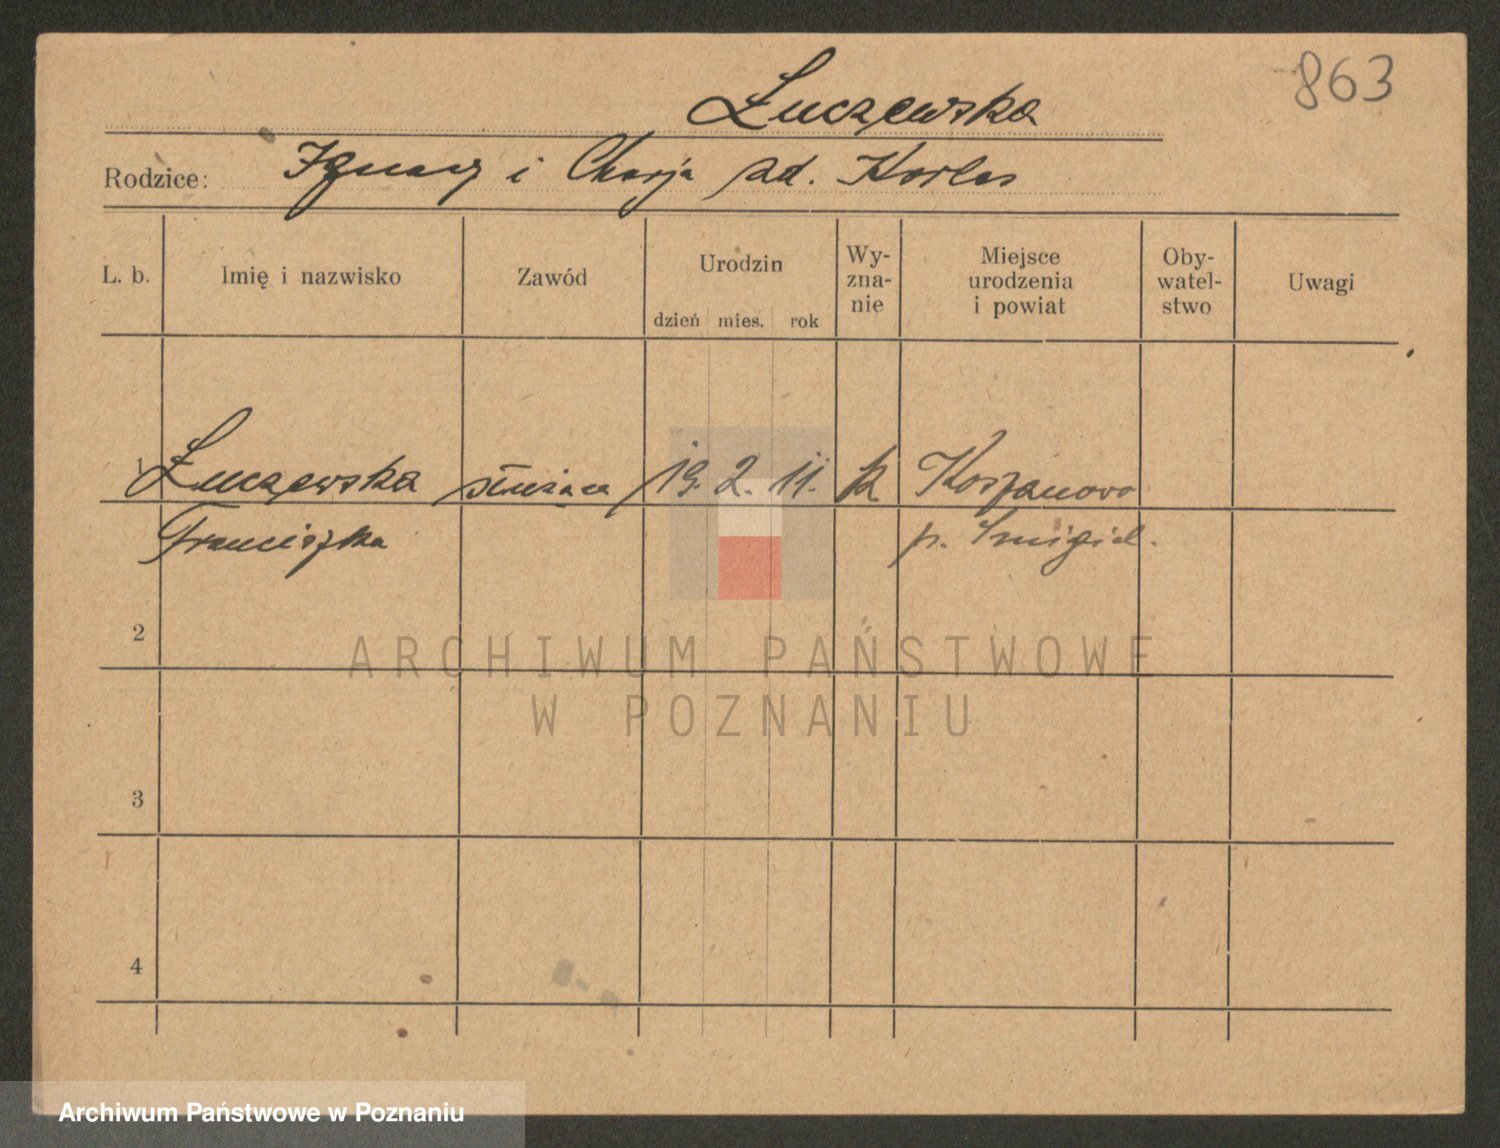 863
Łuczewska
Rodzice: Ignacy i Marja zd. Korlas
L. b. Imię i nazwisko Zawód Urodzin dzień mies. rok Wy-zna-nie Miejsce urodzenia i powiat Oby-watel-stwo Uwagi
1 Łuczewska służąca 19. 2. 11. k Koszanowo
Franciszka p. Śmigiel.
2
ARCHIWUM PAŃSTWOWE
W POZNANIU
3
4
Archiwum Państwowe w Poznaniu